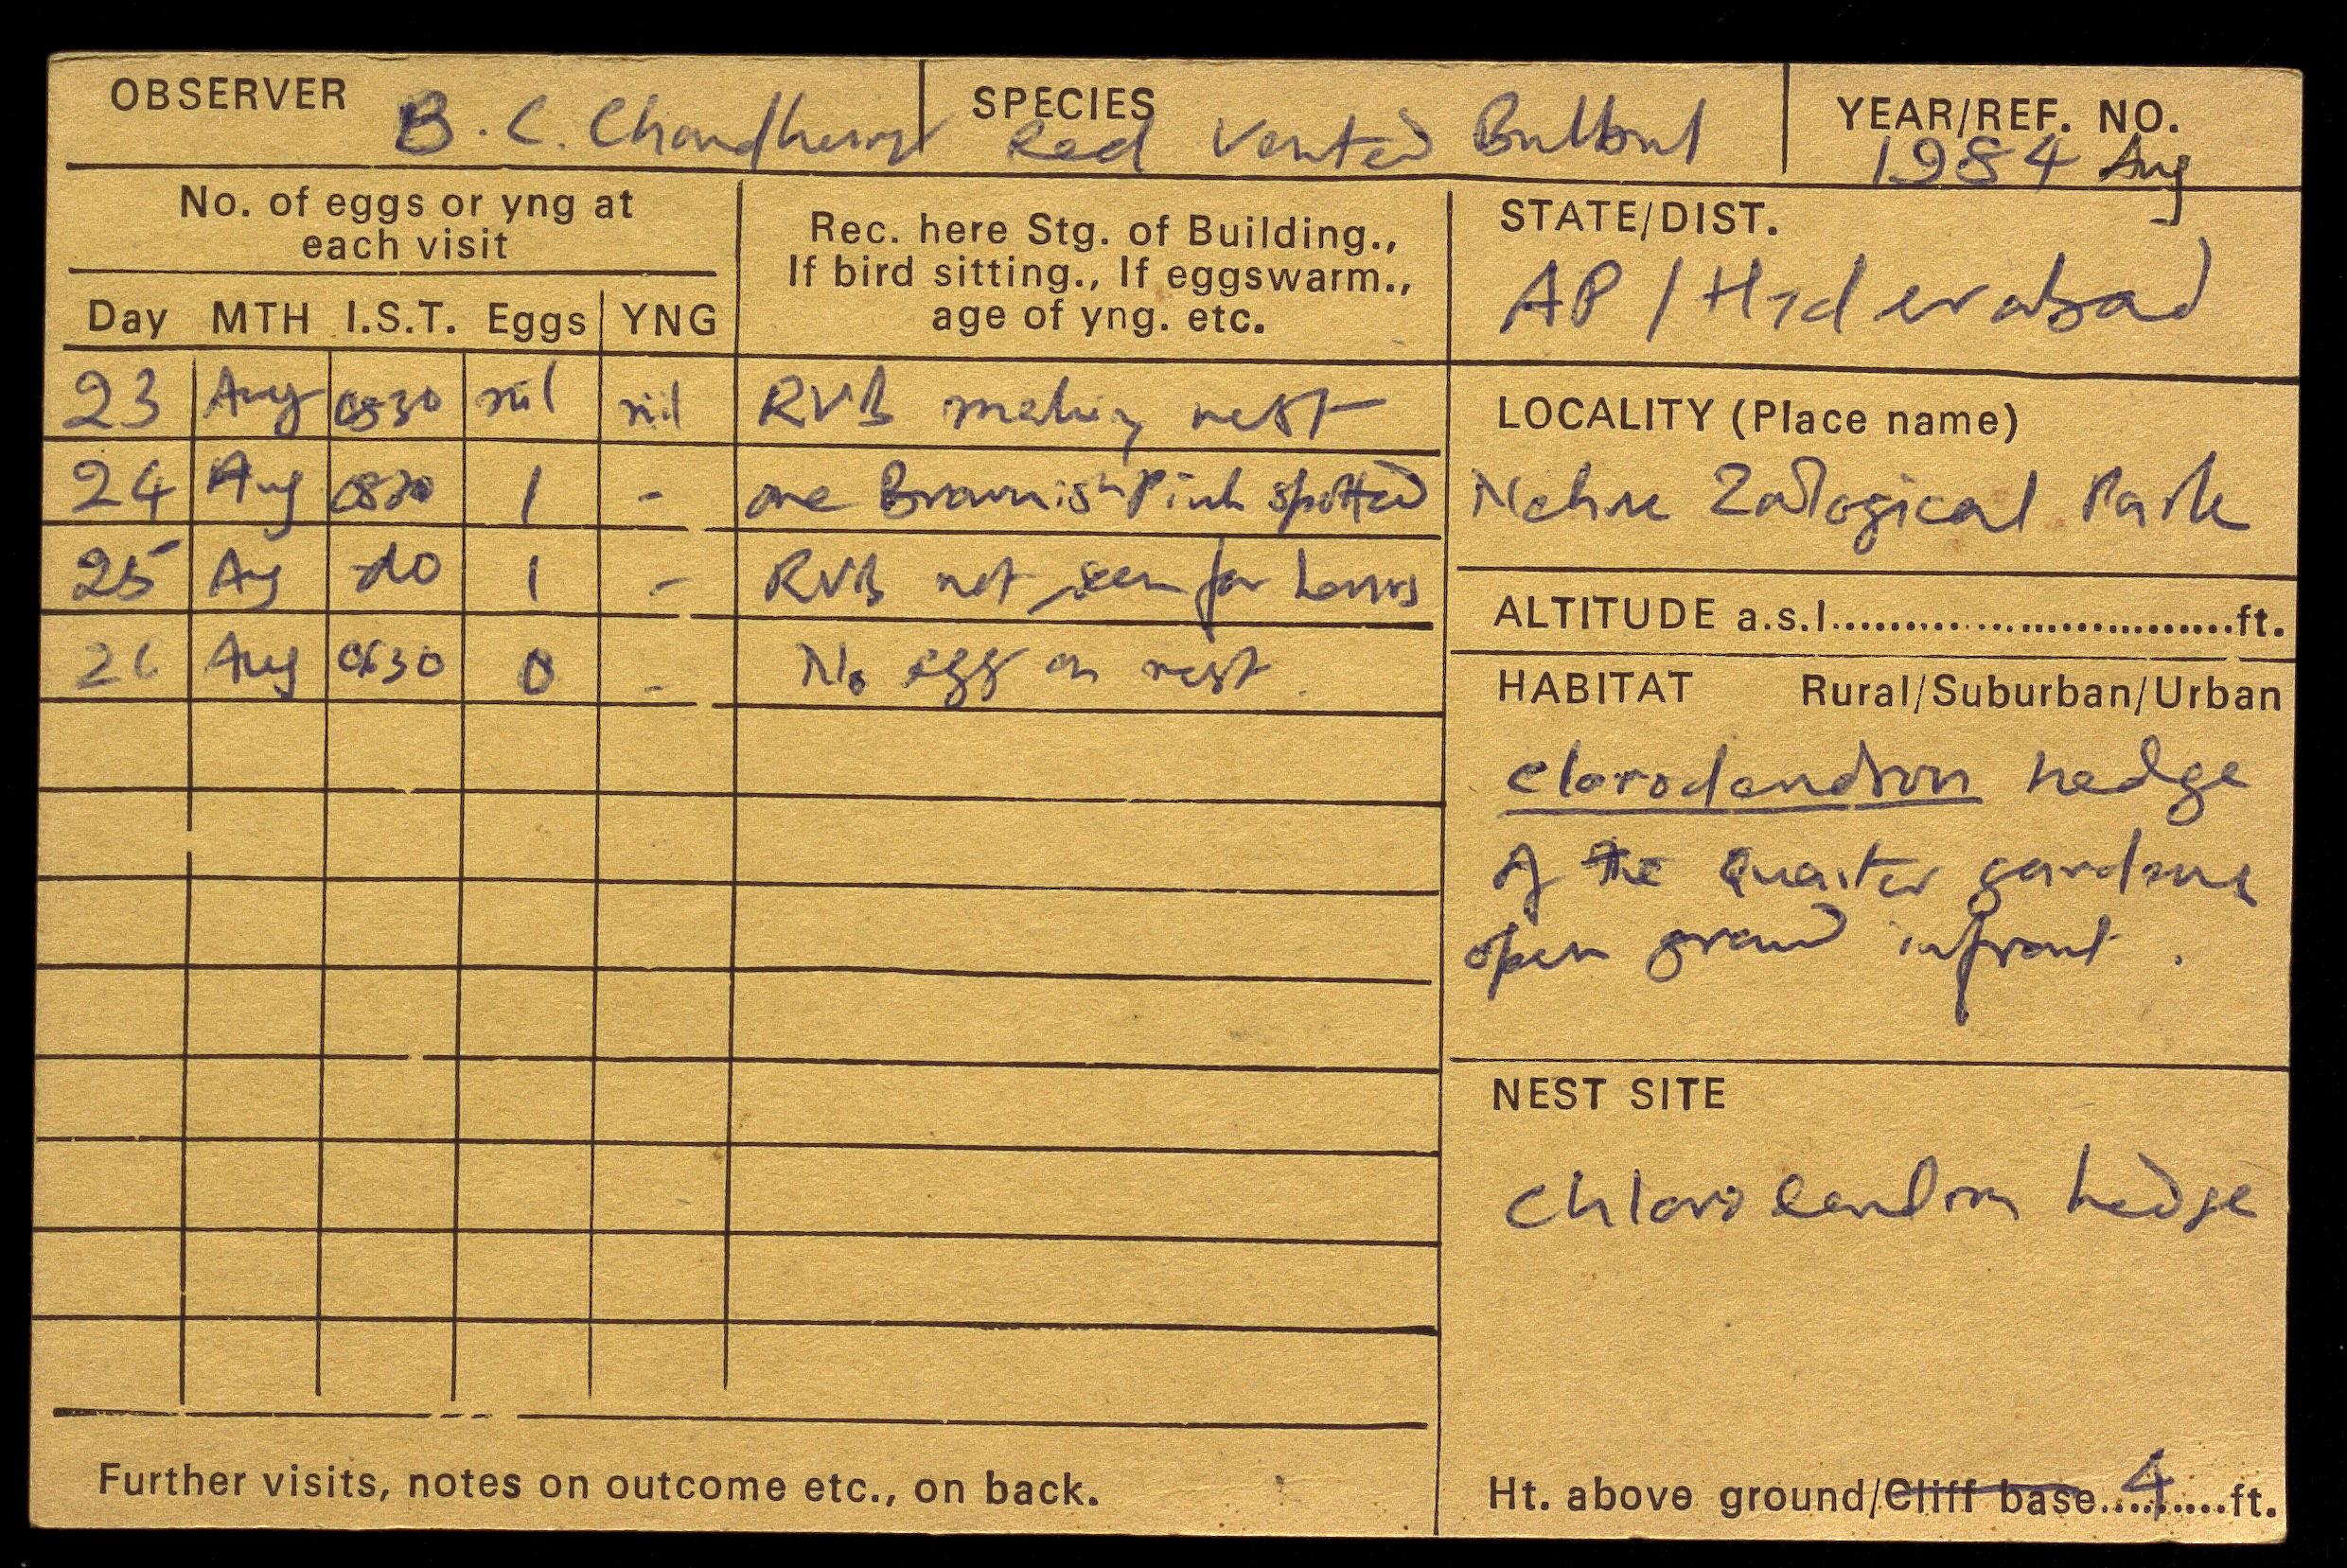 OBSERVER B. C. Choudhury SPECIES Red Vented Bulbul YEAR/REF. NO. 1984 Aug
No. of eggs or yng at
each visit
Day MTH I.S.T. Eggs YNG
Rec. here Stg. of Building.,
If bird sitting., If eggswarm.,
age of yng. etc.
23 Aug 0830 nil nil RVB making nest
24 Aug 0830 1 - one Brownish Pink spotted
25 Aug do 1 - RVB not seen for hours
26 Aug 0630 0 - No egg on nest.
Further visits, notes on outcome etc., on back.
STATE/DIST.
AP / Hyderabad
LOCALITY (Place name)
Nehru Zoological Park
ALTITUDE a.s.l..............................ft.
HABITAT Rural/Suburban/Urban
clorodendron hedge
of the Quarter gardens
open ground infront.
NEST SITE
Chlorodendron hedge
Ht. above ground/Cliff base....4....ft.